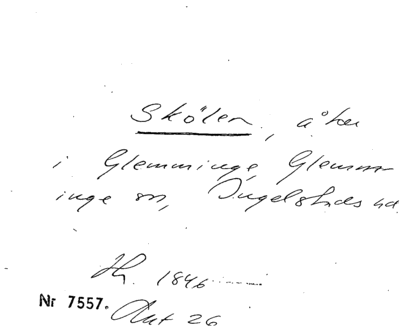 Skölen, åker
i Glemminge, Glemm-
inge sn, Ingelstads hd.
Hs. 1846
Nr 7557.
Akt 26